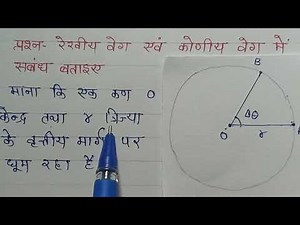 प्रश्न- रेखीय वेग एवं कोणीय वेग में
संबंध बताइए
माना कि एक कण O
केन्द्र तथा r त्रिज्या
के वृत्तीय मार्ग पर
घूम रहा है
B
Δθ
O
r
A